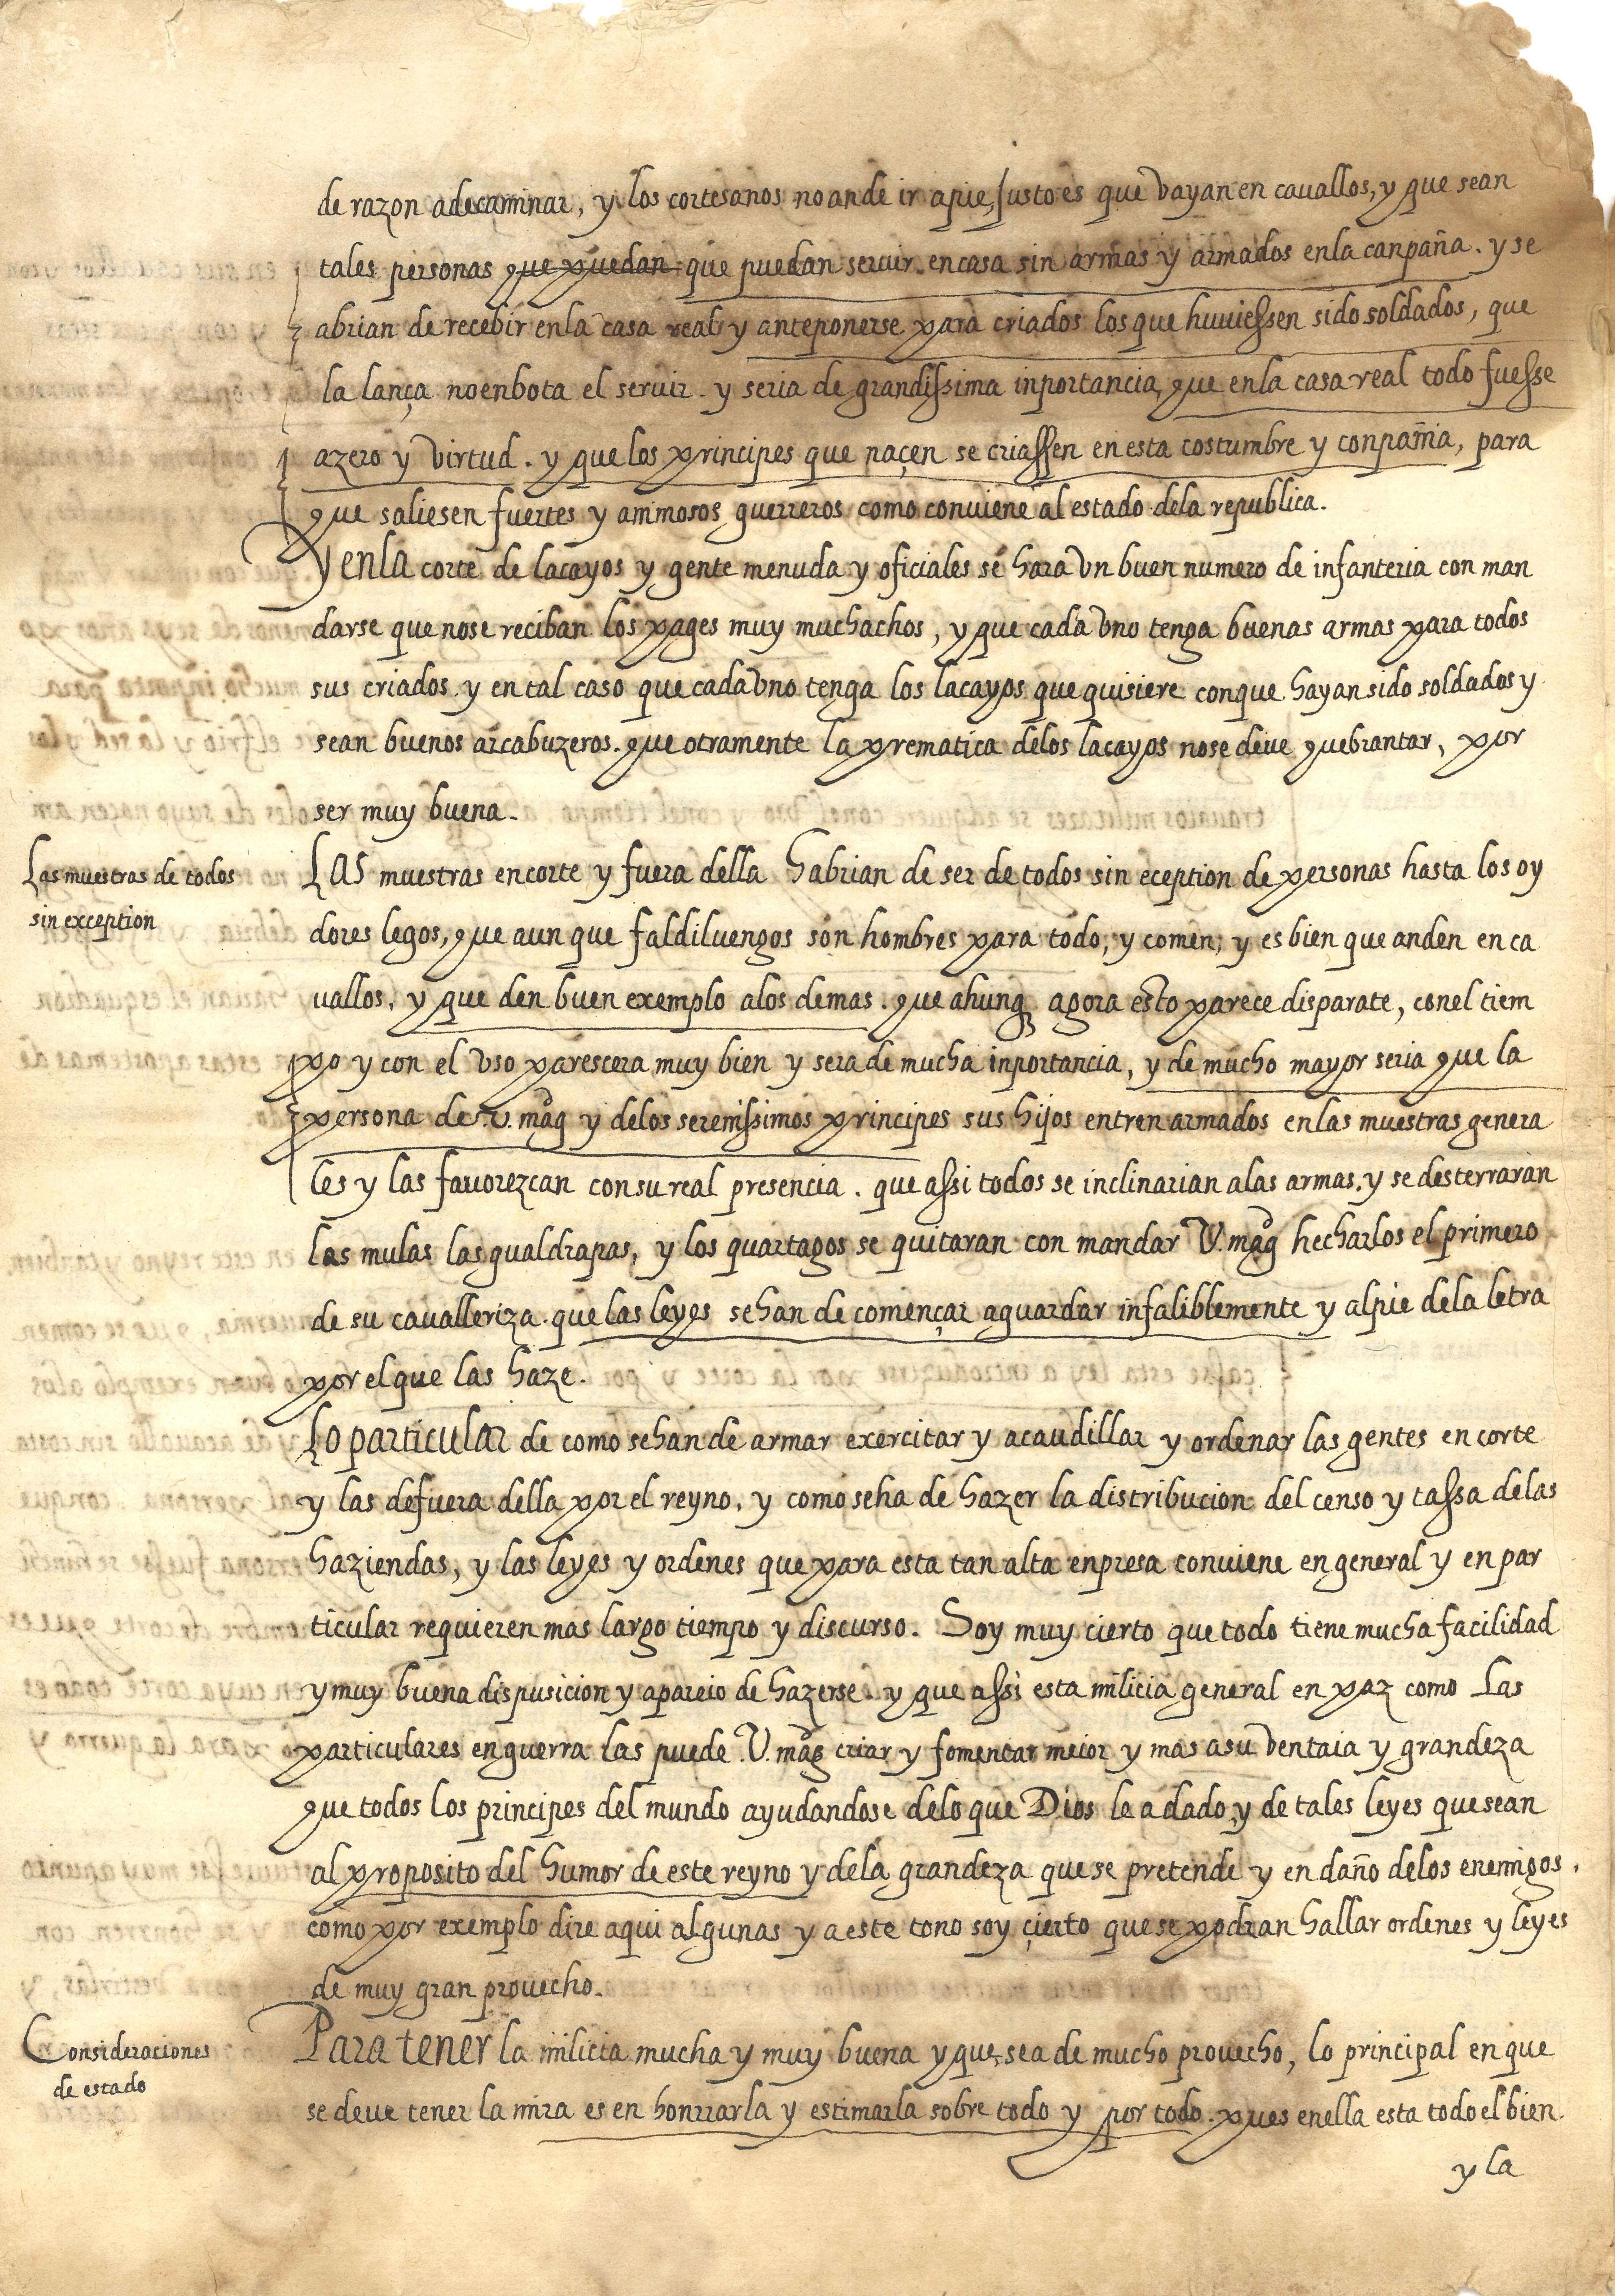 de razon a de caminar, y los cortesanos no an de ir a pie, Justo es que vayan en cauallos, y que sean
tales personas que puedan que puedan seruir en casa sin armas y armados en la canpaña. y se
abrian de recebir en la casa real y anteponerse para criados los que huuiessen sido soldados, que
la lança no enbota el seruir. y seria de grandissima inportancia, que en la casa real todo fuesse
azero y virtud. y que los principes que naçen se criassen en esta costumbre y conpañia, para
que saliesen fuertes y animosos guerreros como conuiene al estado dela republica.
y en la corte de lacayos y gente menuda y oficiales se hara vn buen numero de infanteria con man
darse que no se reciban los pages muy muchachos, y que cada vno tenga buenas armas para todos
sus criados. y en tal caso que cada vno tenga los lacayos que quisiere conque hayan sido soldados y
sean buenos arcabuzeros. que otramente la prematica delos lacayos no se deve quebrantar, por
ser muy buena.
Las muestras de todos
sin exception
LAS muestras en corte y fuera della habrian de ser de todos sin eception de personas hasta los oy
dores legos, que aun que faldiluengos son hombres para todo, y comen, y es bien que anden en ca
uallos, y que den buen exemplo alos demas. que ahunq agora esto parece disparate, con el tiem
po y con el vso parescera muy bien y sera de mucha inportancia, y de mucho mayor seria que la
persona de .V. magd y delos serenissimos principes sus hijos entren armados en las muestras genera
les y las fauorezcan con su real presencia. que assi todos se inclinarian alas armas. y se desterraran
las mulas las gualdrapas, y los quartagos se quitaran con mandar V. magd hecharlos el primero
de su caualleriza. que las leyes se han de començar aguardar infaliblemente y al pie dela letra
por el que las haze.
Lo particular de como se han de armar exercitar y acaudillar y ordenar las gentes en corte
y las de fuera della por el reyno, y como se ha de hazer la distribucion del censo y tassa delas
haziendas, y las leyes y ordenes que para esta tan alta enpresa conuiene en general y en par
ticular requieren mas largo tiempo y discurso. Soy muy cierto que todo tiene mucha facilidad
y muy buena dispusicion y apareio de hazerse. y que assi esta milicia general en paz como las
particulares en guerra las puede .V. magd criar y fomentar meior y mas a su ventaia y grandeza
que todos los principes del mundo ayudandose delo que Dios le a dado, y de tales leyes que sean
al proposito del humor de este reyno y dela grandeza que se pretende y en daño delos enemigos.
como por exemplo dire aqui algunas y a este tono soy çierto que se podran hallar ordenes y leyes
de muy gran prouecho.
Consideraciones
de estado
Para tener la milicia mucha y muy buena y que sea de mucho prouecho, lo principal en que
se deue tener la mira es en honrrarla y estimarla sobre todo y por todo. pues en ella esta todo el bien
y la